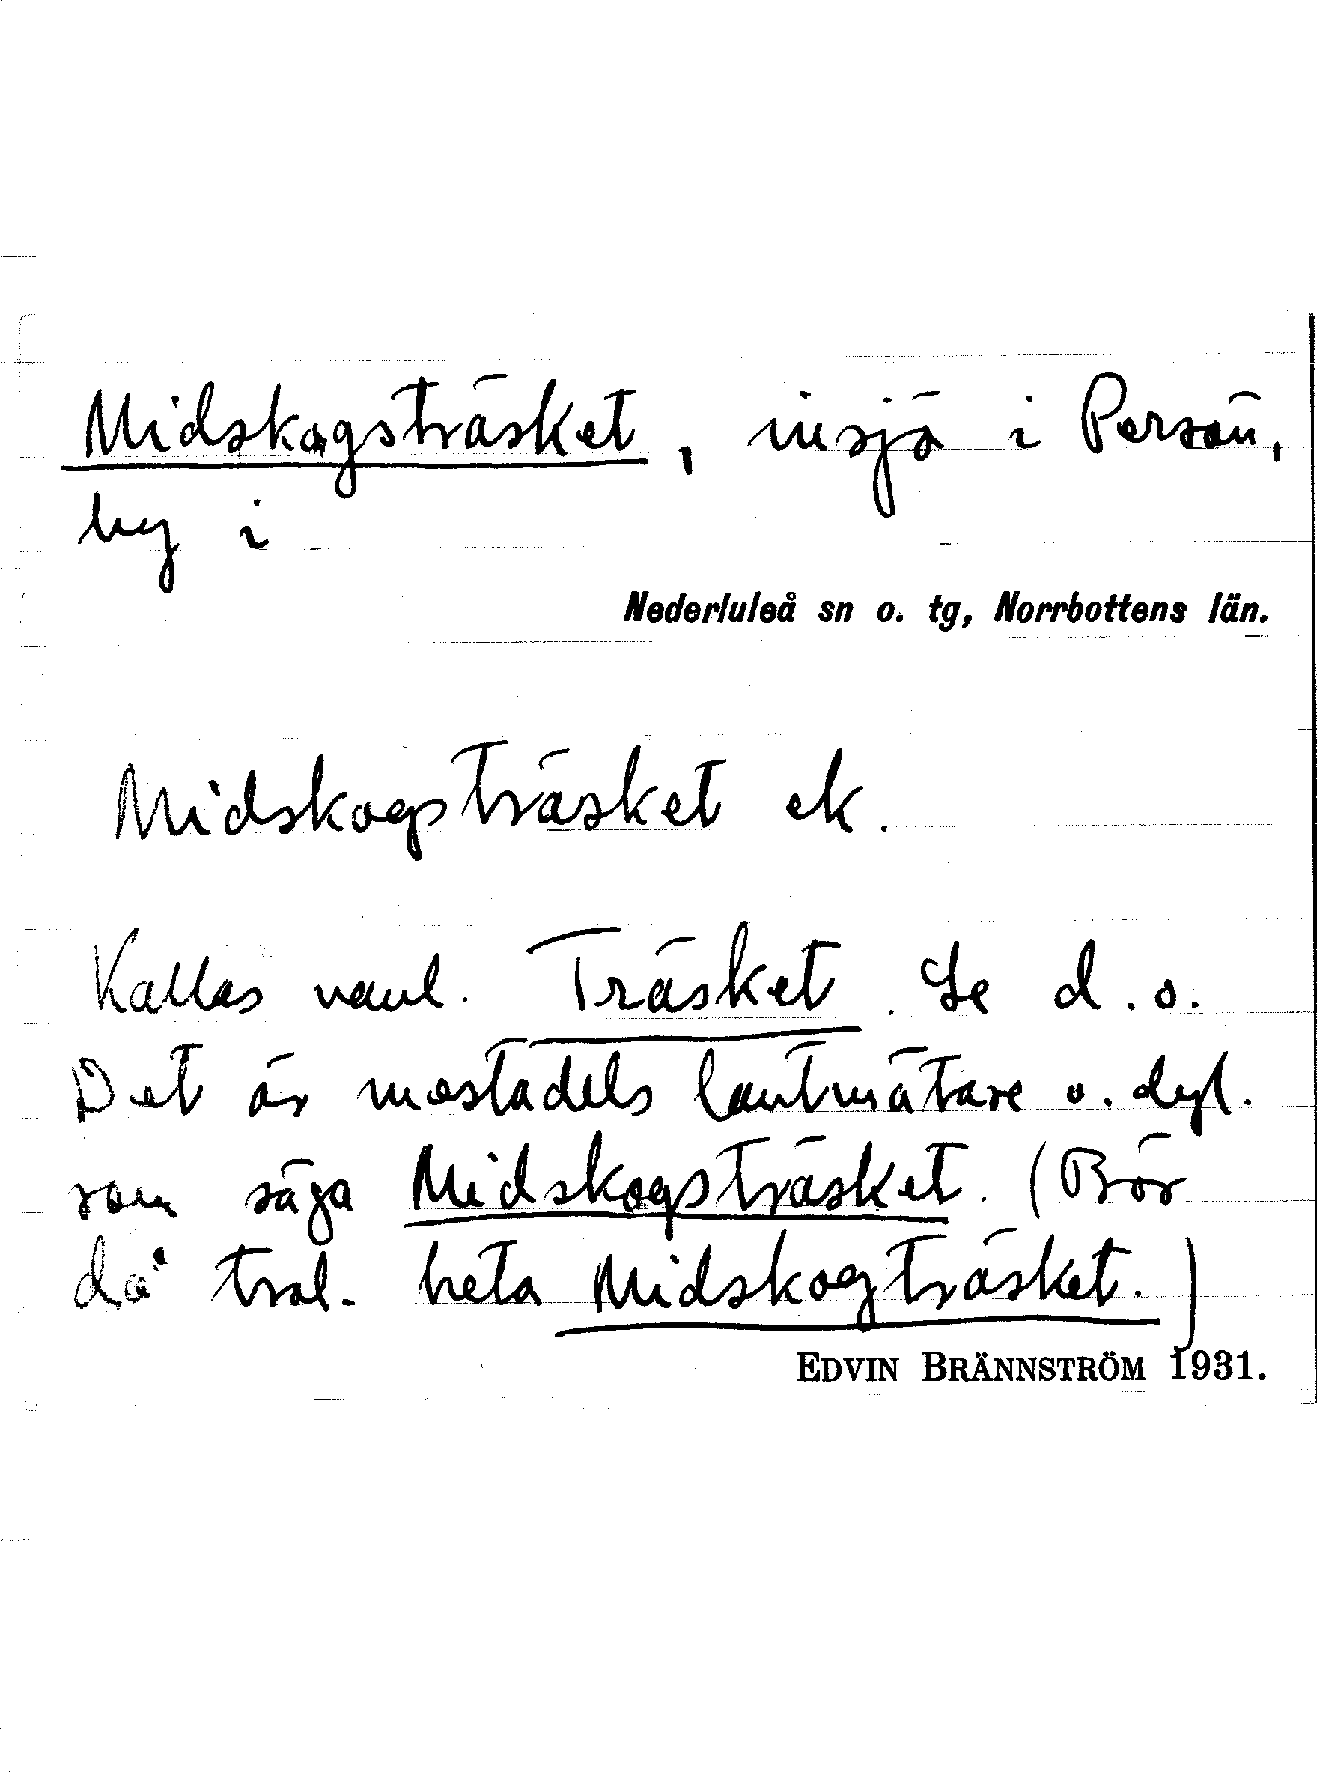 Midskogsträsket, insjö i Persön,
by i
Nederluleå sn o. tg, Norrbottens län.
Midskogsträsket ek.
Kallas vanl. Träsket. Se d. o.
Det är mestadels lantmätare o. dyl.
som säga Midskogsträsket. (Bör
då trol. heta Midskogträsket.)
EDVIN BRÄNNSTRÖM 1931.